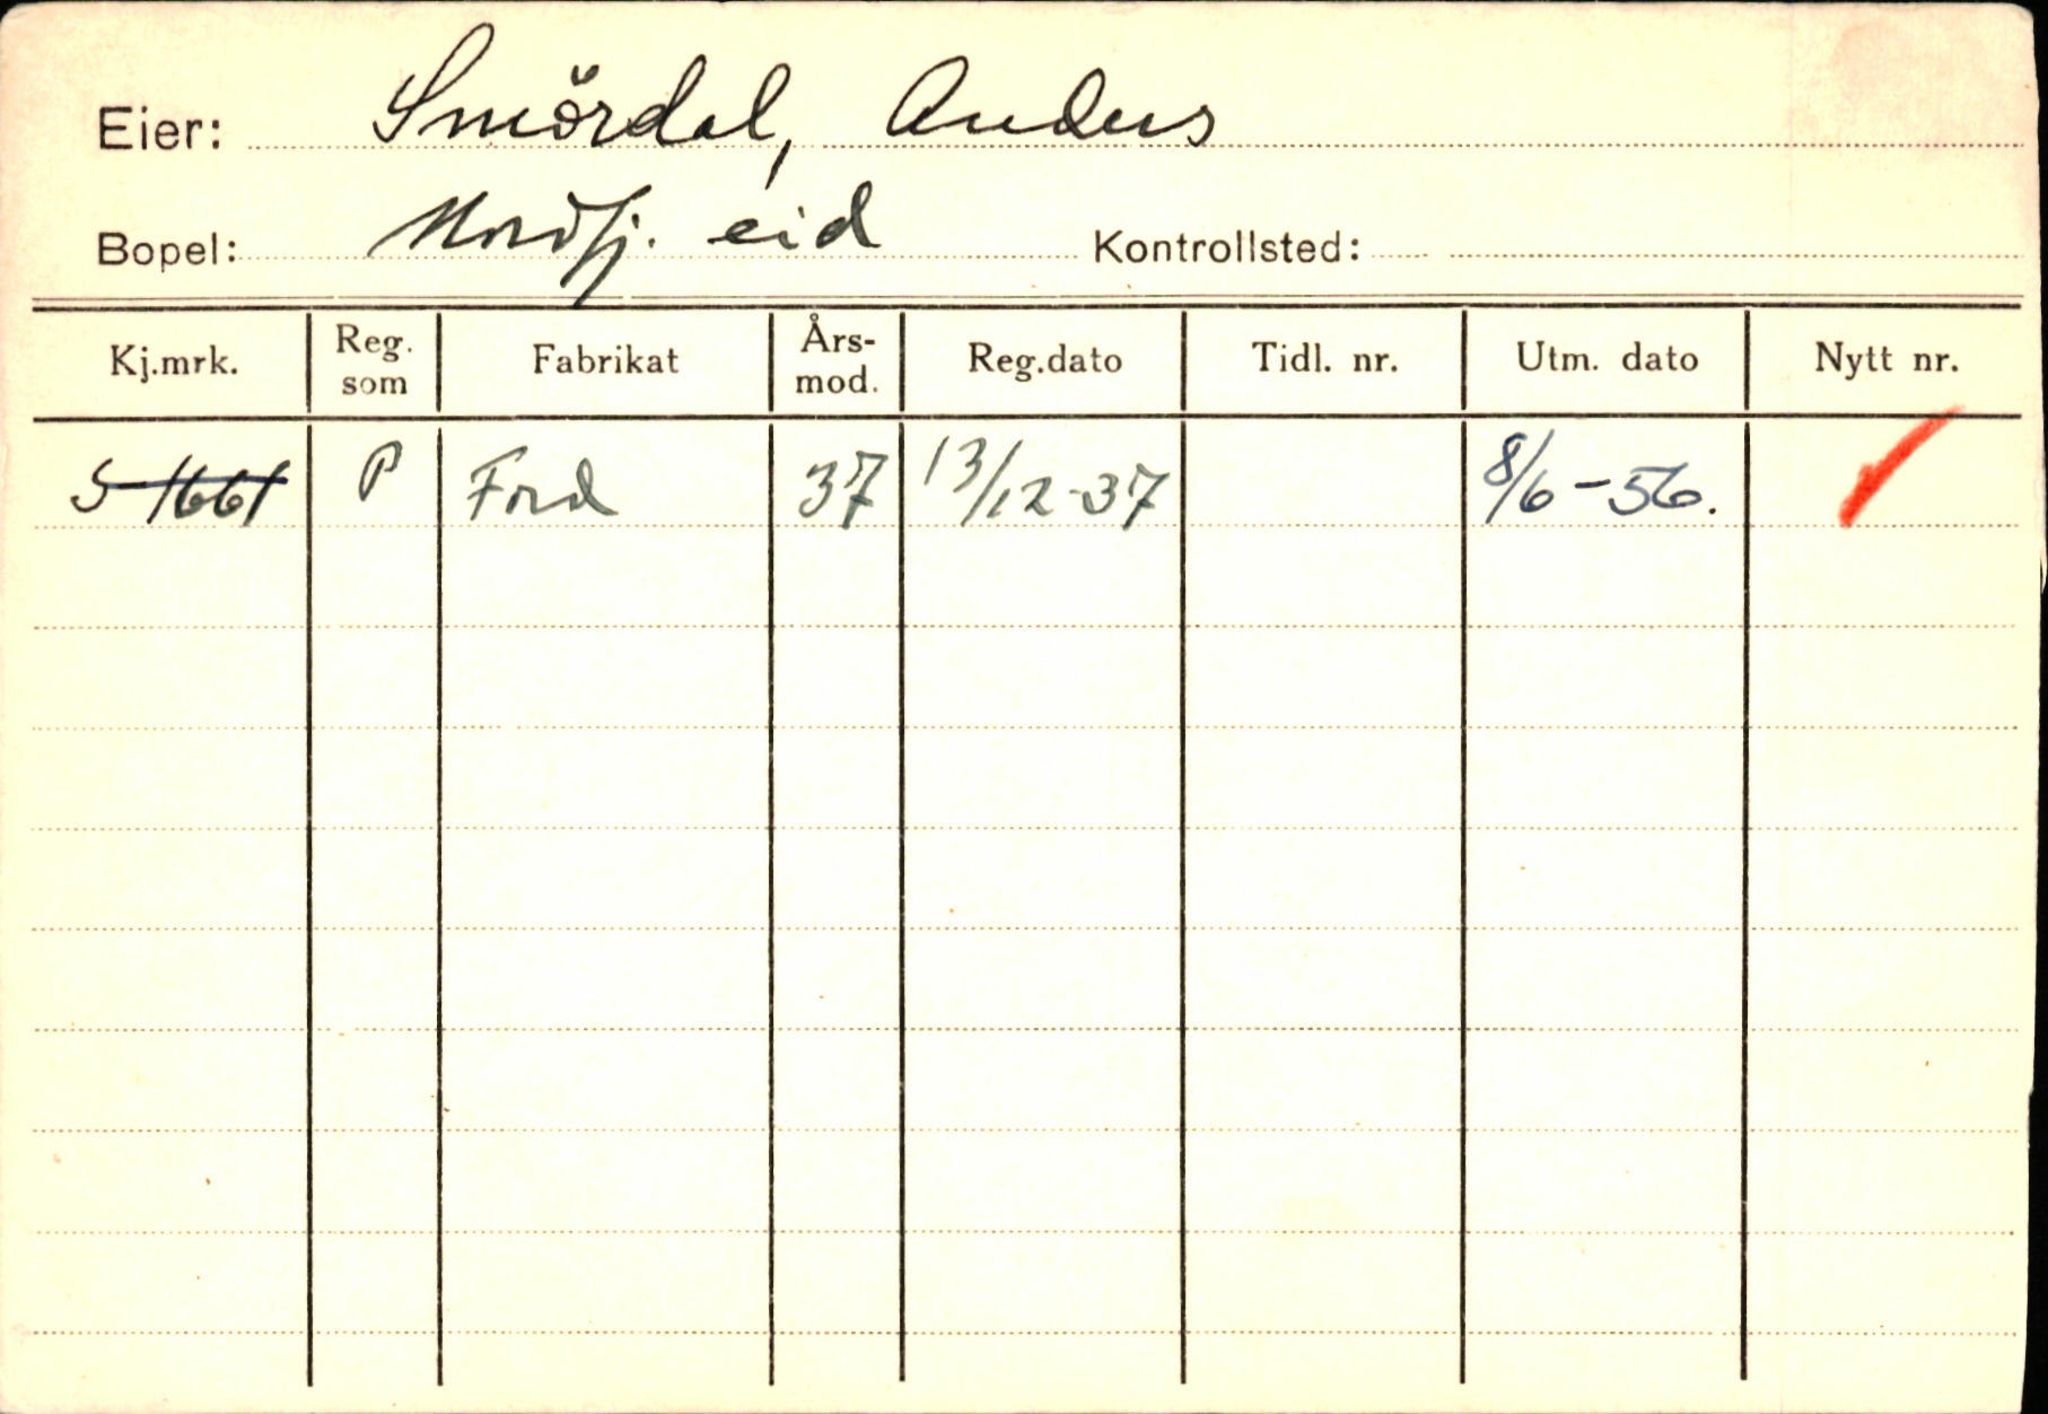 Eier: Smördal, Anders
Bopel: Nordfj. eid Kontrollsted:
Kj.mrk. Reg. som Fabrikat Års-mod. Reg.dato Tidl. nr. Utm. dato Nytt nr.
S-1661 P Ford 37 13/12-37 8/6-56.